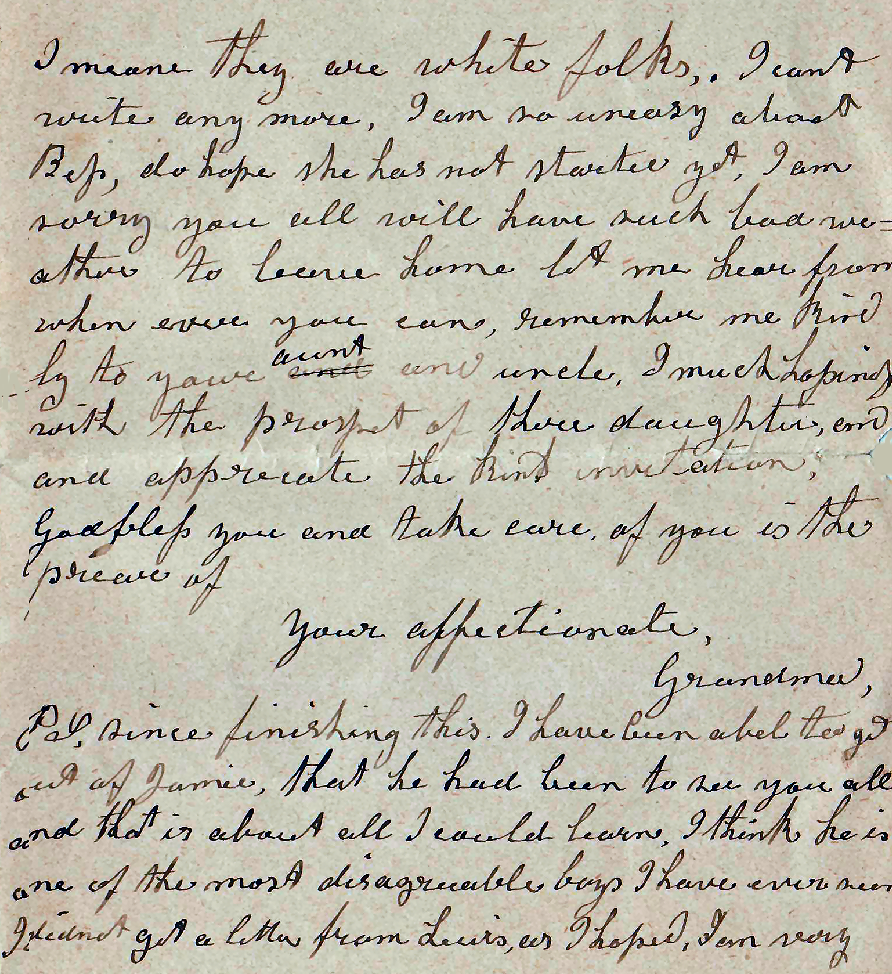 I meane they are white folks,. I cant
write any more, I am so uneasy about
Bess, do hope she has not started yet, I am
sorry you all will have such bad we=
ather to leave home let me hear from
when ever you can, remember me kind
ly to your aunt and uncle, I much hoping
with the prospet of thier daughter, and
and appreciate the kind invitation,
God bless you and take care, of you is the
prear of
Your affectionate,
Grandma,
P.S, since finishing this. I have been abel to get
out of Jamie, that he had been to see you all
and that is about all I could learn, I think he is
one of the most disagreeable boys I have ever seen
I did not get a letter from Lewis, as I hoped, I am very